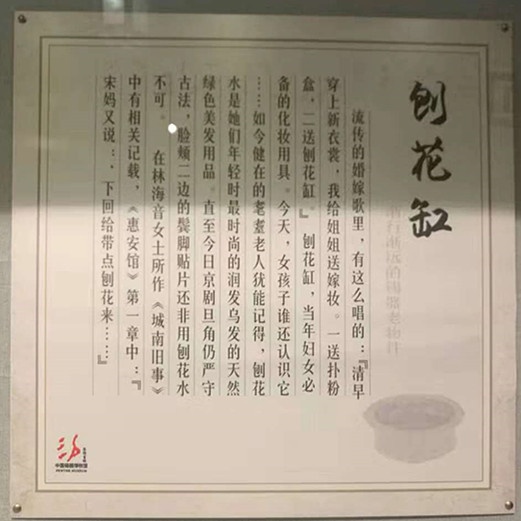 刨花缸
流传的婚嫁歌里，有这么唱的：『清早
穿上新衣裳，我给姐姐送嫁妆。一送扑粉
盒，二送刨花缸。』刨花缸，当年妇女必
备的化妆用具。今天，女孩子谁还认识它
……如今健在的耄耋老人犹能记得，刨花
水是她们年轻时最时尚的润发乌发的天然
绿色美发用品。直至今日京剧旦角仍严守
古法，脸颊二边的鬓脚贴片还非用刨花水
不可。 在林海音女士所作《城南旧事》
中有相关记载，《惠安馆》第一章中：『
宋妈又说：：下回给带点刨花来……』